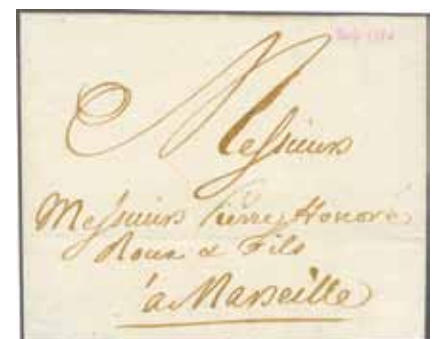 Messieurs
Messieurs Pierre Honoré
Roux & Fils
à Marseille